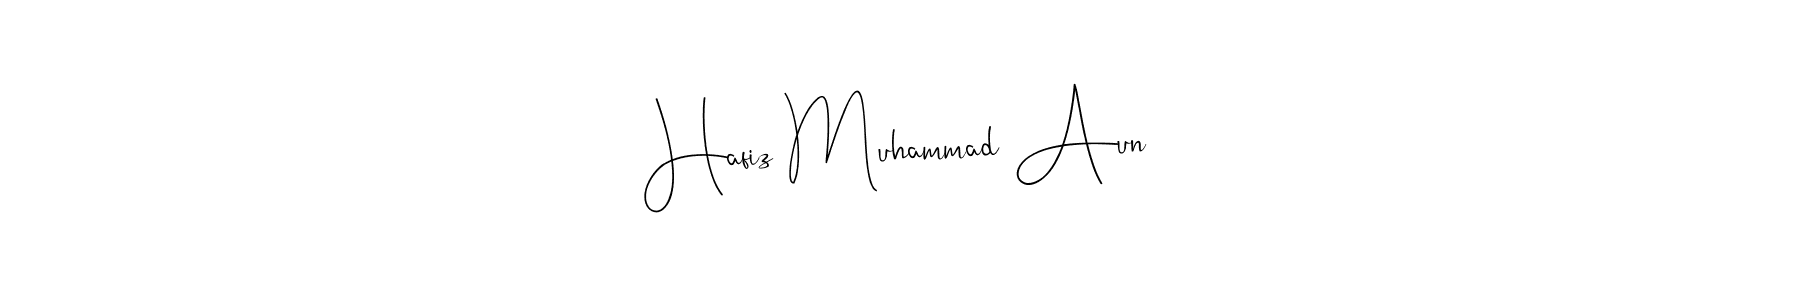 Hafiz Muhammad Aun